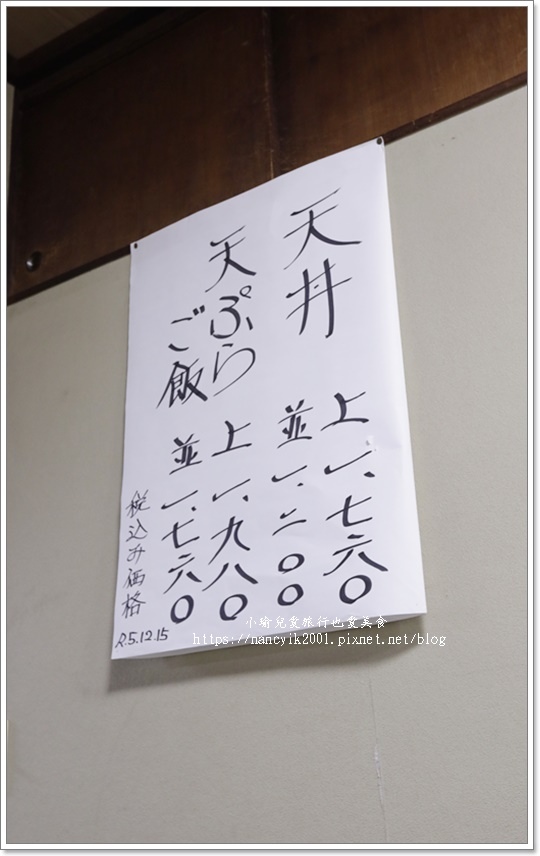 天丼
上 一、七六〇
並 一、二〇〇
天ぷら
ご飯
上 一、九八〇
並 一、七六〇
税込み価格
R.5.12.15
小瑜兒愛旅行也愛美食
https://nancyik2001.pixnet.net/blog